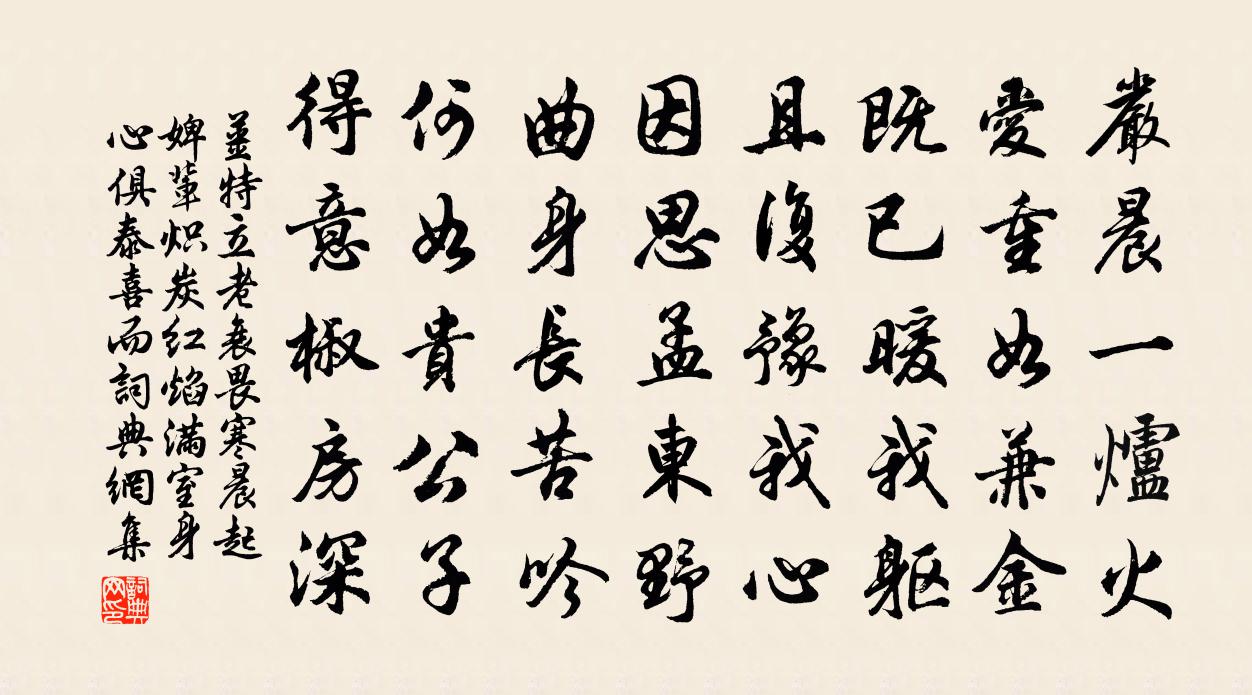 嚴晨一爐火
愛重如兼金
既已暖我軀
且復豫我心
因思孟東野
曲身長苦吟
何如貴公子
得意椒房深
姜特立老衰畏寒晨起
婢輩炽炭红焰滿室身
心俱泰喜而詞典網集
詞典网印